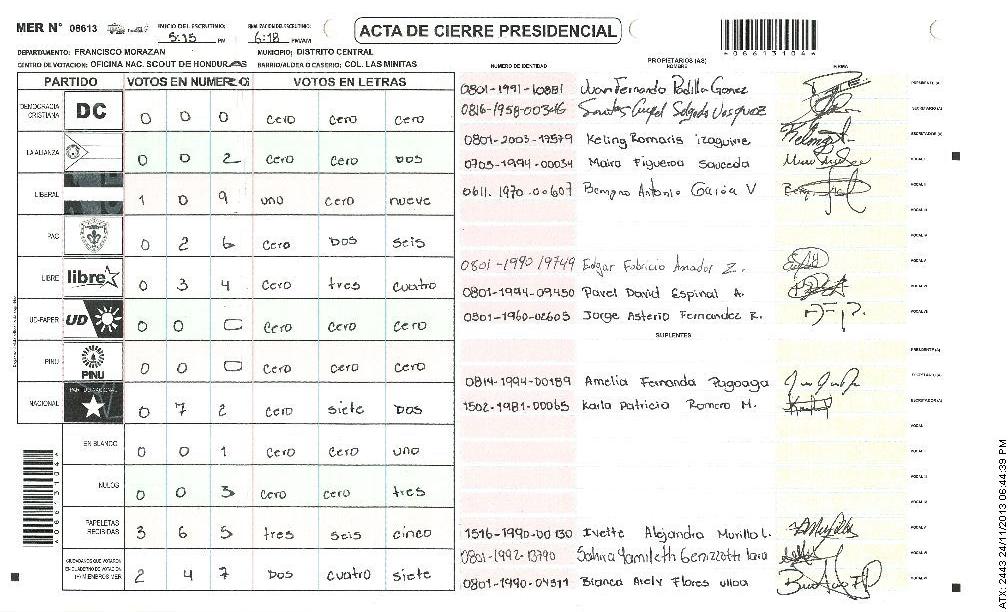 MER N° 08613 INICIO DEL ESCRUTINIO: 5:15 PM FINALIZACION DEL ESCRUTINIO: 6:18 PM/AM ACTA DE CIERRE PRESIDENCIAL
*06613104*
DEPARTAMENTO: FRANCISCO MORAZAN MUNICIPIO: DISTRITO CENTRAL
CENTRO DE VOTACION: OFICINA NAC. SCOUT DE HONDURAS BARRIO/ALDEA O CASERIO: COL. LAS MINITAS
PARTIDO VOTOS EN NUMERO VOTOS EN LETRAS
DEMOCRACIA CRISTIANA DC 0 0 0 cero cero cero
LA ALIANZA 0 0 2 cero cero dos
LIBERAL 1 0 9 uno cero nueve
PAC 0 2 6 cero dos seis
LIBRE libre 0 3 4 cero tres cuatro
UD-FAPER UD 0 0 0 cero cero cero
PINU PINU 0 0 0 cero cero cero
NACIONAL 0 7 2 cero siete dos
EN BLANCO 0 0 1 cero cero uno
NULOS 0 0 3 cero cero tres
PAPELETAS RECIBIDAS 3 6 5 tres seis cinco
CIUDADANOS QUE VOTARON EN CUADERNO DE VOTACION (+) MIEMBROS MER 2 4 7 dos cuatro siete
PROPIETARIOS (AS)
NUMERO DE IDENTIDAD NOMBRE FIRMA
0801-1991-10881 Juan Fernando Padilla Gomez PRESIDENTE (A)
0816-1958-00346 Santos Angel Salgado Vasquez SECRETARIO (A)
0801-2003-17579 Keling Romaris izaguirre
0703-1994-00034 Maira Figueroa Sauceda VOCAL I
0611.1970.00607 Benigno Antonio Garcia V VOCAL II
VOCAL III
VOCAL IV
0801-1990 19749 Edgar Fabricio Amador Z. VOCAL V
0801-1994-09450 Pavel David Espinal A. VOCAL VI
0501-1960-02605 Jorge Asterio Fernandez R. VOCAL VII
SUPLENTES
PRESIDENTE (A)
0814-1994-00189 Amelia Fernanda Pagoaga SECRETARIO (A)
1502-1981-00065 Karla Patricia Romero M.
1516-1990-00130 Ivette Alejandra Murillo L. VOCAL V
0801-1992-13790
0801-1990-04511 Bianca Arely Flores Ulloa
ATX-2443 24/11/2013 06:44:39 PM